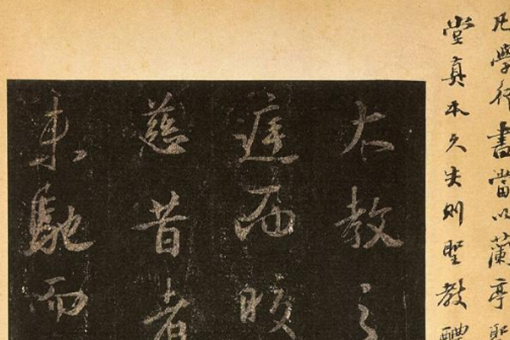 凡學行書當以蘭亭聖
堂真本久失則聖教醴
大教之
庭而皎
慈昔者
未馳而